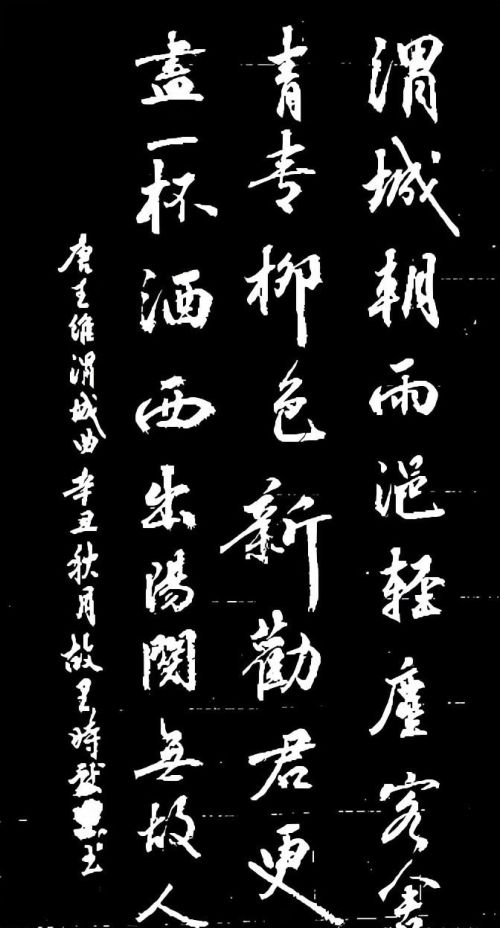 渭城朝雨浥輕塵客舍
青青柳色新勸君更
盡一杯酒西出陽關無故人
唐王維渭城曲辛丑秋月故里時